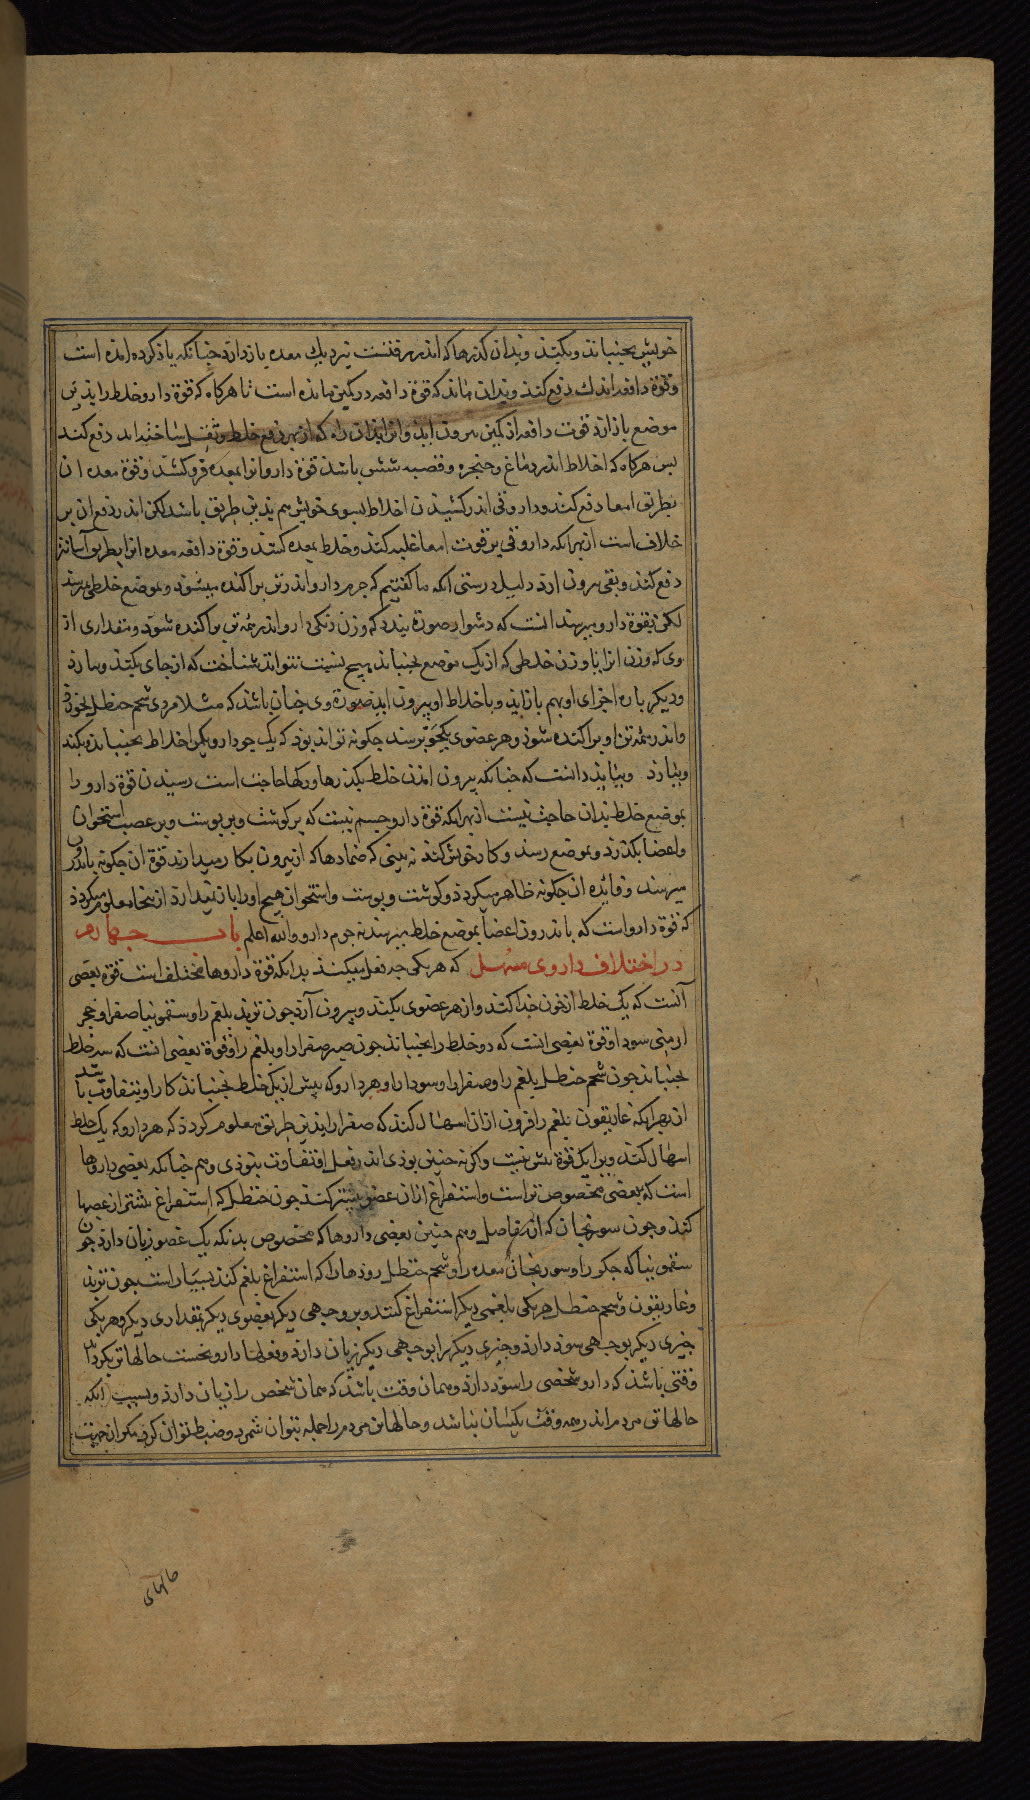 خویش بجنباند و بکشد و بدان کذرها که اندر رفتست نزدیك معده باز دارد چنانکه یاذ کرده امده است
و قوة دافعه اندك دفع کند و بدان ماند که قوة دافعه در کمین مانده است تا هرکاه که قوة دارو خلط را بدین
موضع باز ارد قوت دافعه از کمین بیرون اید و انرا بدان راه که از بهر دفع خلط و ثفل ساخته اند دفع کند
بس هرکاه که اخلاط اندر دماغ و حنجره و قصبه شش باشد قوة دارو انرا بمعده فرو کشد و قوة معده ان
بطریق امعا دفع کند و داروقی اندر کشیدن اخلاط بسوی خویش هم بذین طریق باشد لکن اندر دفع ان بر
خلاف است از بهر انکه داروقی بر قوت امعا غلبه کند و خلط بمعده کشد و قوة دافعه معده انرا بطریق آسانتر
دفع کند و بقی بیرون ارد دلیل درستی انکه ما کفتیم که جرم دارو اندر تن براکنده میشود و بموضع خلط می برسد
لکن بقوة دارو میرسد انست که دشوار صورة بندد که وزن دنکی دارو اندر همه تن براکنده شود و مقداری از
وی که وزن انرا با وزن خلطی که از یک موضع بجنباند بهیچ نسبت نتواند شناخت که از جای بکند و بیارد
و دیکر باره اجزای او بهم باز اید و با اخلاط او بیرون اید صورة وی چنان باشد که مثلا مردی شحم حنظل بخورد
و اندر همه تن او براکنده شود و هر عضوی یکجو برسد چکونه تواند بود که یک جو دارو یکمن اخلاط بجنباند و بکند
و بیارد و بباید دانست که چنانکه بیرون امدن خلط بکذرها و رکها حاجت است رسیدن قوة دارو را
بموضع خلط بدان حاجت نیست از بهر انکه قوة دارو جسم نیست که بر کوشت و بر بوست و بر عصب استخوان
و اعضا بکذرد و بموضع رسد و کار خویش کند نه بینی که ضمادها که از بیرون بکار میدارند قوة ان چکونه باندرون
میرسد و فایده ان چکونه ظاهر میکردد و کوشت و بوست و استخوان هیچ او را باز نمیدارد از اینجا معلوم میکردد
که قوة دارواست که باندرون اعضا بموضع خلط میرسد نه جرم دارو والله اعلم باب جهارم
در اختلاف داروی مسهل که هر یکی چه فعل میکند بدانکه قوة داروها مختلف است قوة بعضی
آنست که یک خلط از خون جدا کند و از هر عضوی بکشد و بیرون آرد جون تربد بلغم را و سقمونیا صفرا و حجر
ارمنی سودا و قوة بعضی انست که دو خلط را بجنباند جون صبر صفرا را و بلغم را و قوة بعضی انست که سه خلط
بجنباند جون شحم حنظل بلغم را و صفرا را و سودا را و هر دارو که بیش از یک خلط بجنباند کار او بتفاوت باشد
از بهر انکه غاریقون بلغم را فزون از ان اسهال کند که صفرا را بذین طریق معلوم کردد که هر دارو که یک خلط
اسهال کند ویرا یک قوة بیش نیست و اکر نه چنین بودی اندر فعل او تفاوت نبودی و هم چنانکه بعضی داروها
است که ببعضی مخصوص تر است و استفراغ از ان عضو بیشتر کند جون حنظل که استفراغ بیشتر از عصبها
کند و جون سورنجان که از مفاصل و هم چنین بعضی داروها که مخصوص بدانکه یک عضو زیان دارد جون
سقمونیا که جکر را و سورنجان معده را و شحم حنظل رودها را که استفراغ بلغم کند بسیار است جون تربد
و غاریقون و شحم حنظل هر یکی بلغمی دیکر استفراغ کند و بر وجهی دیکر بعضوی دیکر بمقداری دیکر و هر یکی
چیزی دیکر بوجهی سود دارد و چیزی دیکر را بوجهی دیکر زیان دارد و فعلها دارو بحسب حالها تن بکردد
وقتی باشد که دارو شخصی را سود دارد و همان وقت باشد که همان شخص را زیان دارد و بسبب انکه
حالها تن مردم اندر همه وقت یکسان نباشد و حالها تن مردم را جمله نتوان شمرد و ضبط نتوان کرد
حالهای